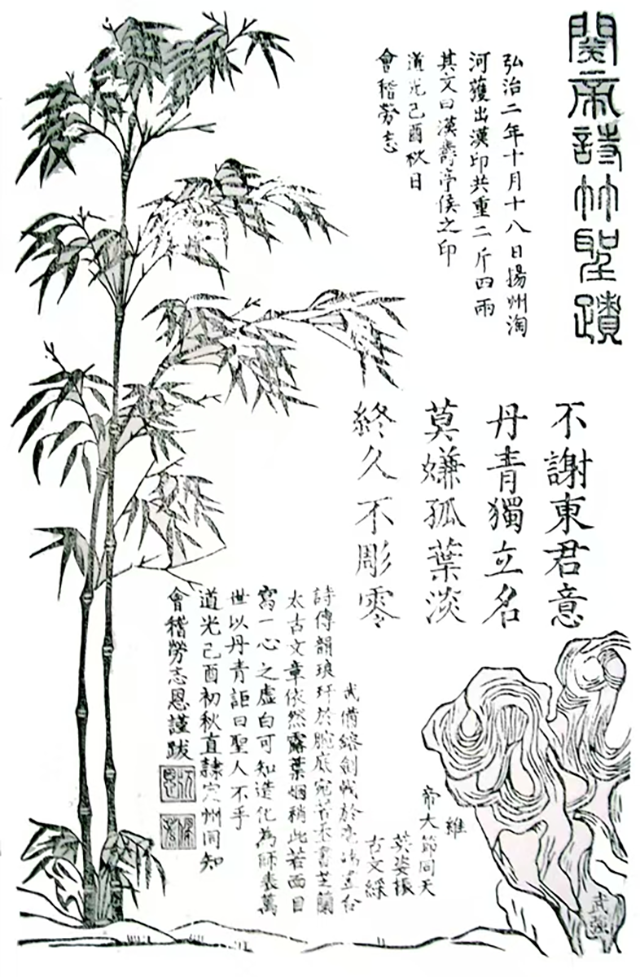 關帝詩竹聖蹟
弘治二年十月十八日揚州淘
河獲出漢印共重二斤四兩
其文曰漢壽亭侯之印
道光己酉秋日
會稽勞志
不謝東君意
丹青獨立名
莫嫌孤葉淡
終久不彫零
維
帝大節同天
英姿振
古文綵
武備
詩傳韻琅玕於腕底宛若書芝蘭
太古文章依然露葉烟梢此君面目
寫一心之虛白可知造化為師表萬
世以丹青詎曰聖人不乎
道光己酉初秋直隸定州同知
會稽勞志恩謹跋
武强